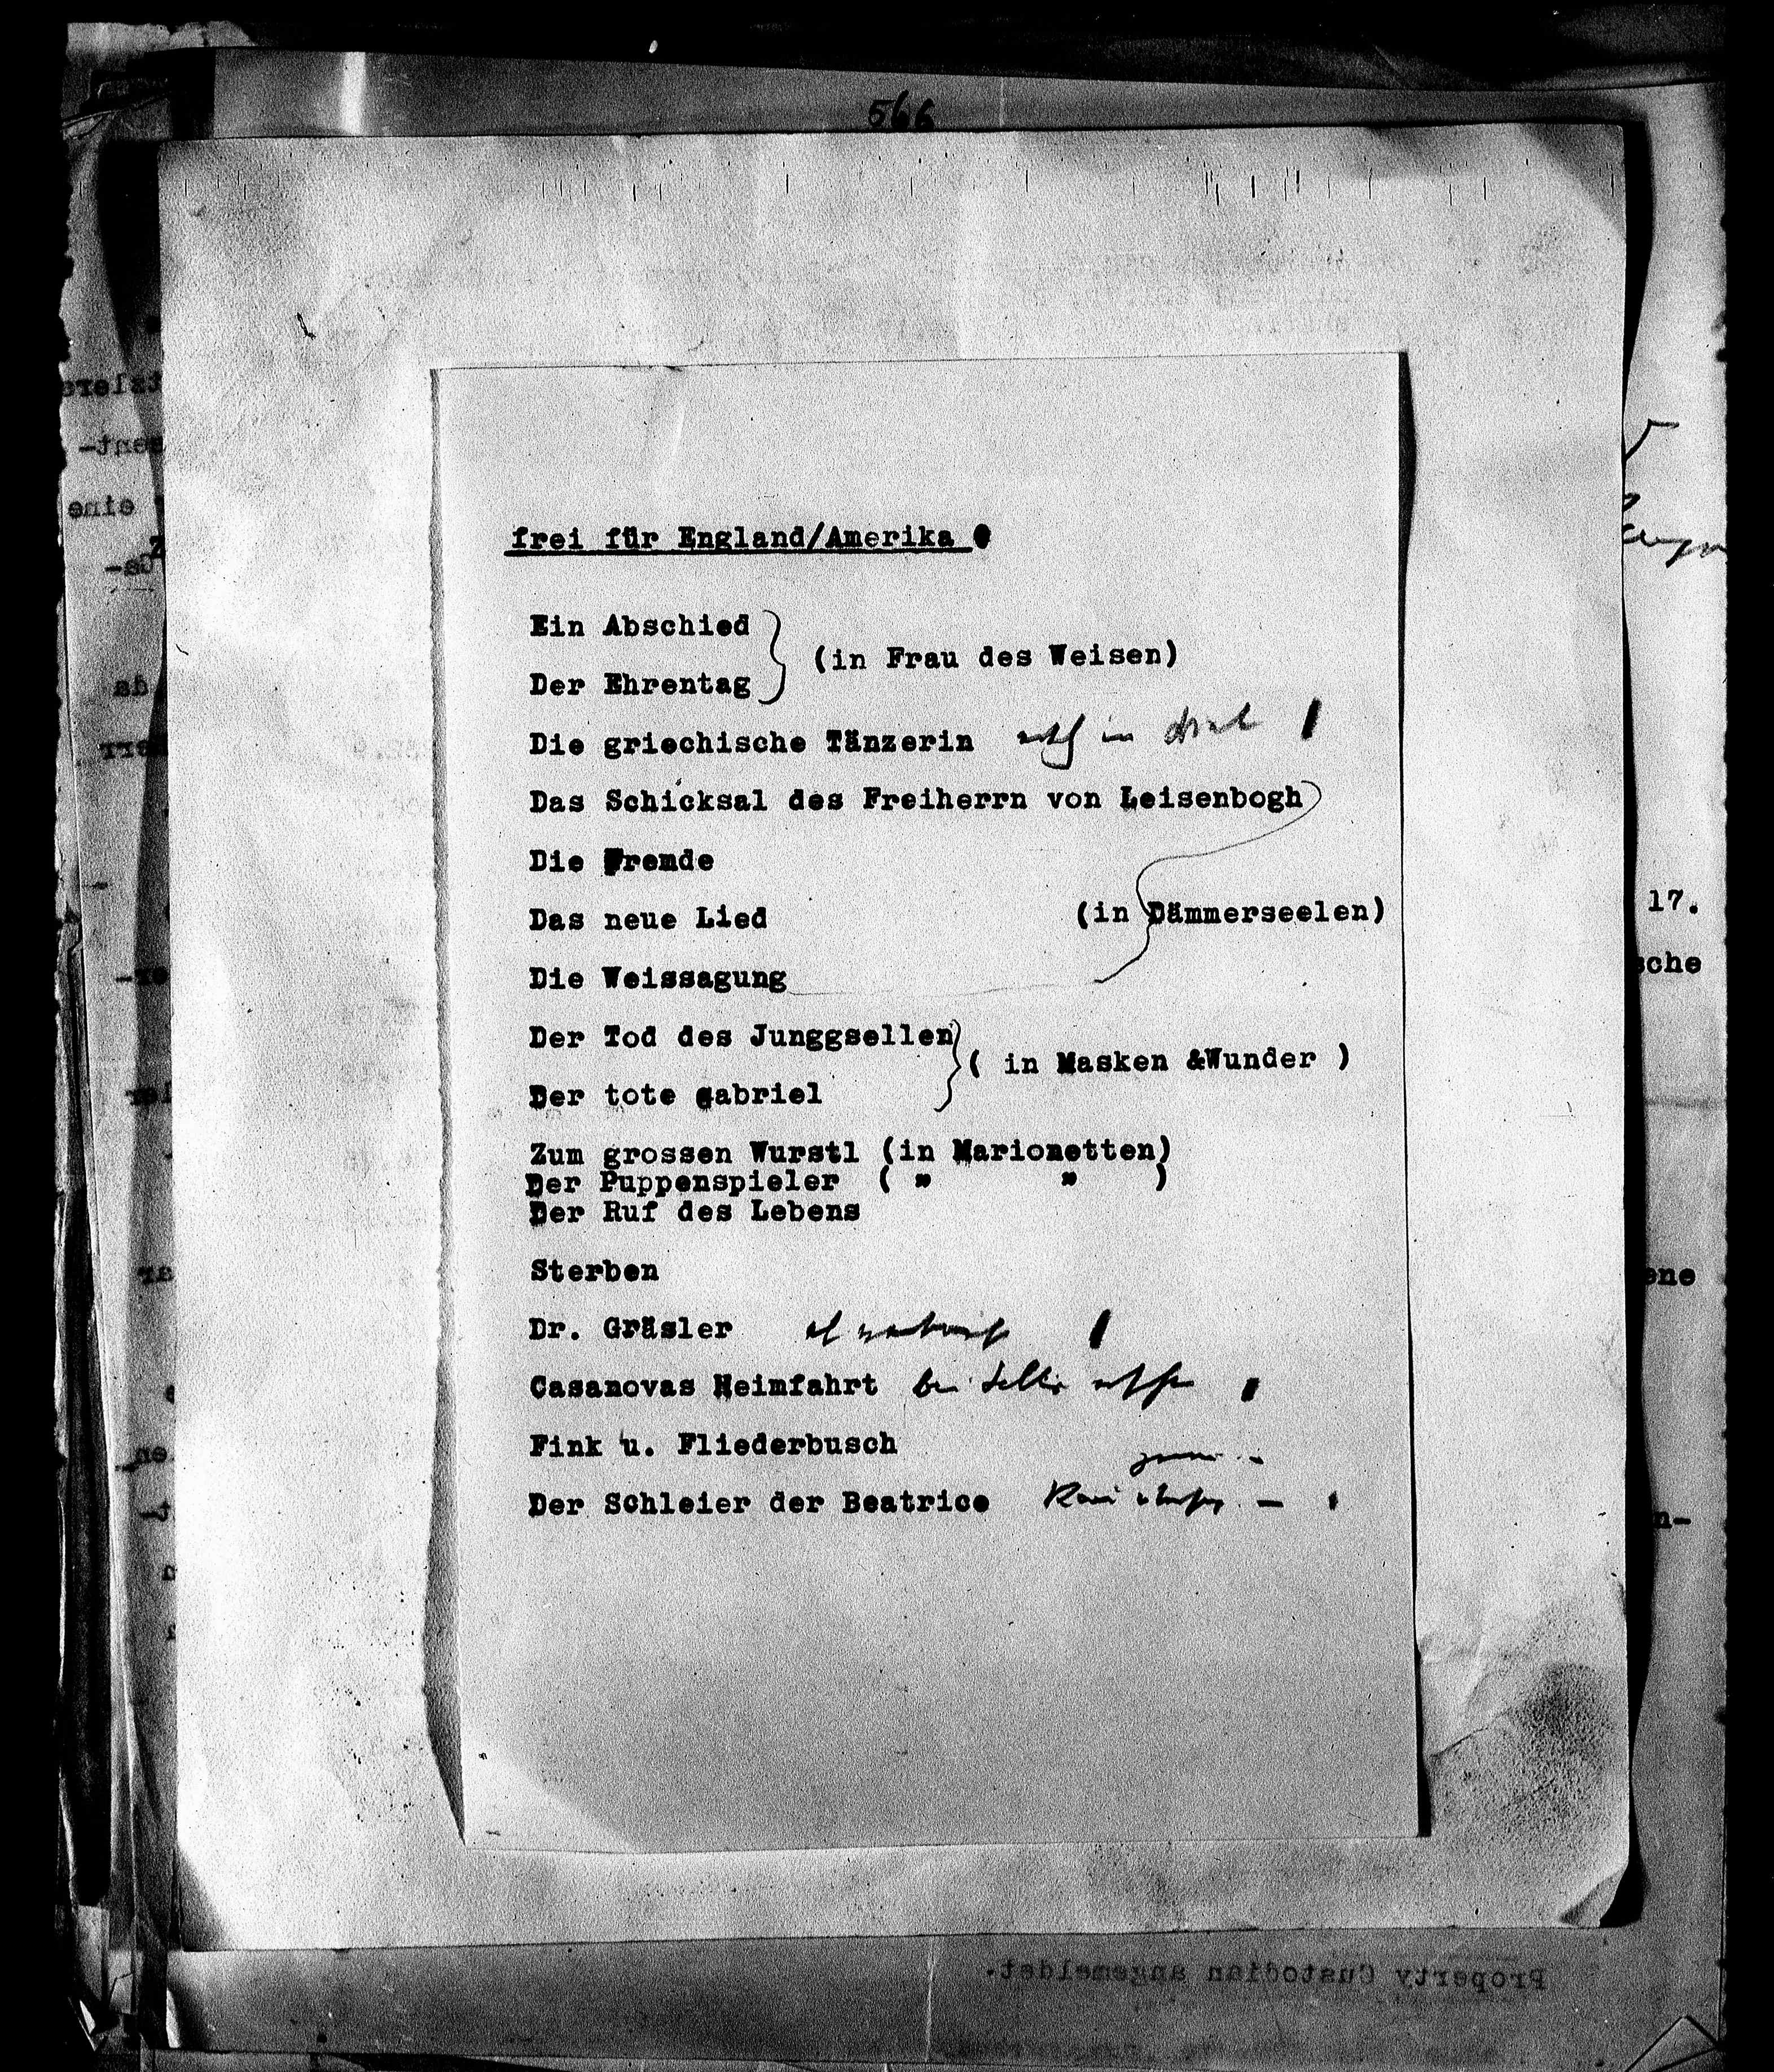 566
frei für England/Amerika
Ein Abschied
(in Frau des Weisen)
Der Ehrentag
Die griechische Tänzerin
Das Schicksal des Freiherrn von Leisenbogh
Die Fremde
Das neue Lied (in Dämmerseelen)
Die Weissagung
Der Tod des Junggsellen
( in Masken &Wunder )
Der tote gabriel
Zum grossen Wurstl (in Marionetten)
Der Puppenspieler ( " " )
Der Ruf des Lebens
Sterben
Dr. Gräsler
Casanovas Heimfahrt bei
Fink u. Fliederbusch
Der Schleier der Beatrice
17.
sche
Property Custodian angemeldet.